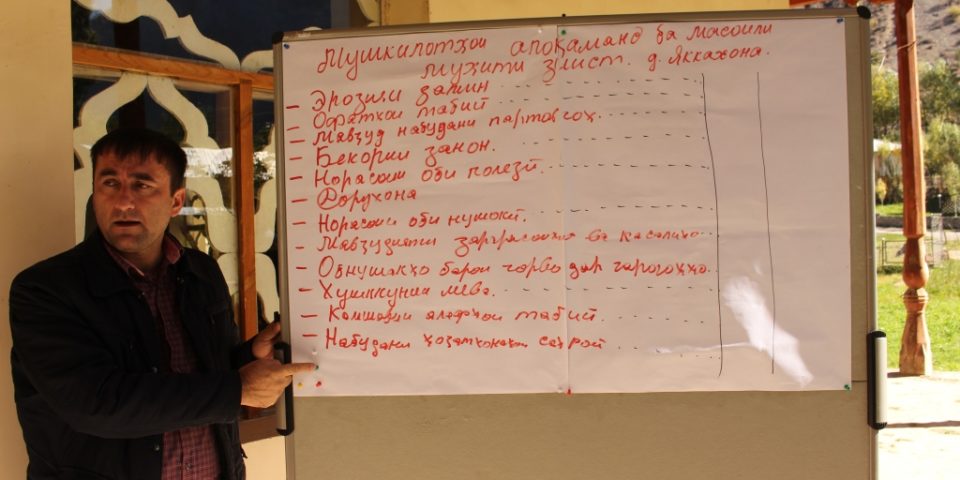 Мушкилотҳои алоқаманд ба масоили
муҳити зист. д. Яккахона.
– Эрозияи замин
– Офатҳои табиӣ
– Мавҷуд набудани партовгоҳ.
– Бекории занон.
– Норасоии оби полезӣ.
– Дорухона
– Норасоии оби нушокӣ.
– Мавҷудияти зараррасонҳо ва касалиҳо
– Обнушакҳо барои чорво дар чарогоҳҳо.
– Хушккунии мева.
– Камшавии алафҳои табиӣ.
– Набудани саҳроӣ